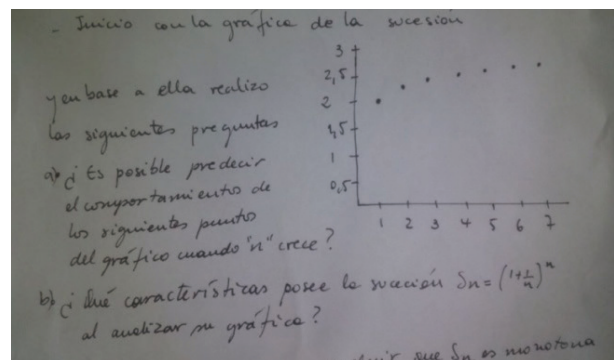 - Inicio con la gráfica de la sucesión
y en base a ella realizo
las siguientes preguntas
a) ¿Es posible predecir
el comportamientos de
los siguientes puntos
del gráfico cuando "n" crece?
3
2,5
2
1,5
1
0,5
1 2 3 4 5 6 7
b) ¿Qué características posee la sucesión Sn = (1+1/n)^n
al analizar su gráfica?
que Sn es monotona